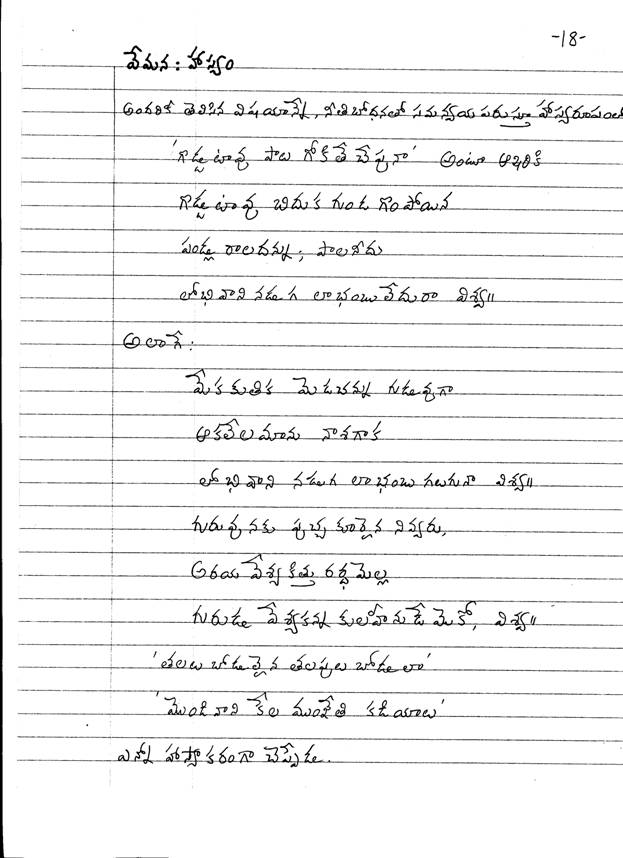 -18-
వేమన : హాస్యం
అందరికి తెలిసిన విషయాన్నే, నీతిబోధనతో సమన్వయ పరుస్తూ హాస్యరూపంలో
'గొడ్డుటావు పాలు గోకితే చేపునా' అంటూ ఆఖరికి
గొడ్డుటావు బిదుక గుండ గొంపోయిన
పండ్లు రాలదన్ను; పాలనీదు
లోభివాని నడుగ లాభంబులేదురా విశ్వ॥
అలాగే :
మేక కుతిక మెడచన్ను గుడువగా
ఆకలేల మాను నాశగాక
లోభివాని నడుగ లాభంబు గలుగునా విశ్వ॥
గురువునకు పుచ్చ కూరైన నివ్వరు,
అరయ వేశ్య కిత్తు రర్థమెల్ల
గురుడు వేశ్యకన్న కులహీనుడేమొకో, విశ్వ॥
'తలలు బోడులైన తలపులు బోడులా'
'మొండి వాని కేల ముంజేతి కడియాలు'
ఎన్నో హాస్యాకరంగా చెప్పేడు.